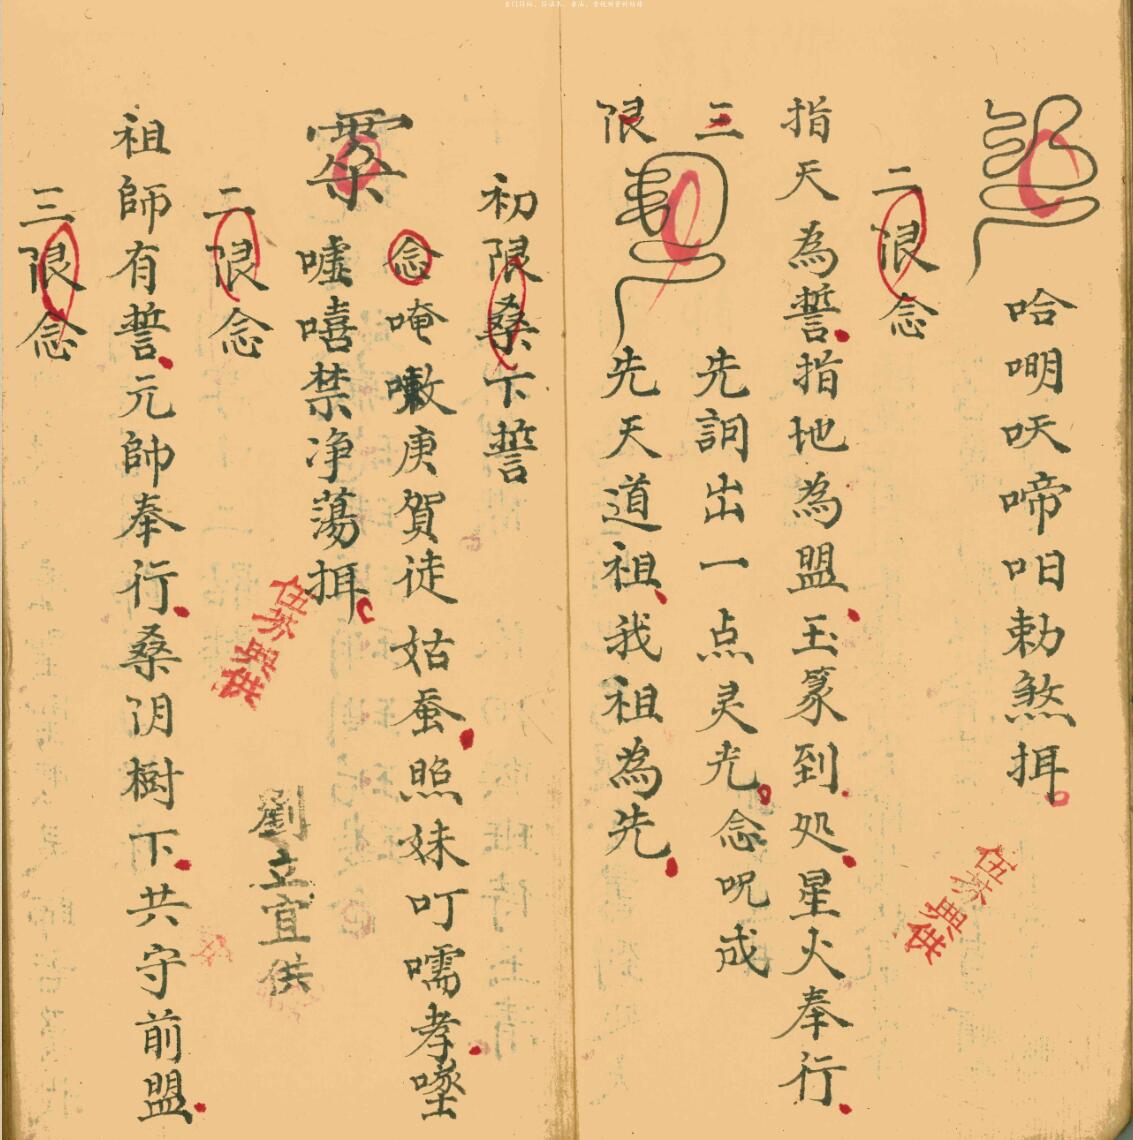 哈嘲㕭啼呬勅煞挕
二限念
指天為誓指地為盟玉篆到処星火奉行
三先詞出一点灵光念呪成
限先天道祖我祖為先
初限桑下誓
念唵嗽庚賀徒姑蚕照妹叮嚅孝
噓嘻禁净蕩挕
二限念
劉立宜供
祖師有誓元帥奉行桑阴樹下共守前盟
三限念